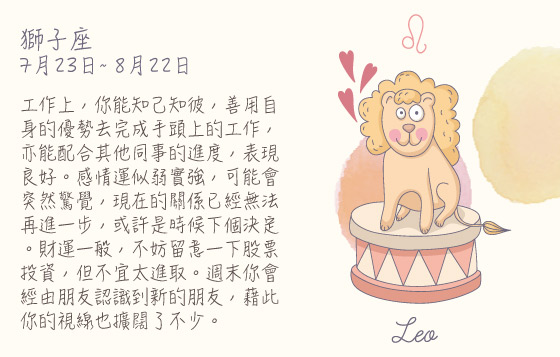 ♌
獅子座
7月23日~8月22日
工作上，你能知己知彼，善用自
身的優勢去完成手頭上的工作，
亦能配合其他同事的進度，表現
良好。感情運似弱實強，可能會
突然驚覺，現在的關係已經無法
再進一步，或許是時候下個決定
。財運一般，不妨留意一下股票
投資，但不宜太進取。週末你會
經由朋友認識到新的朋友，藉此
你的視線也擴闊了不少。
Leo